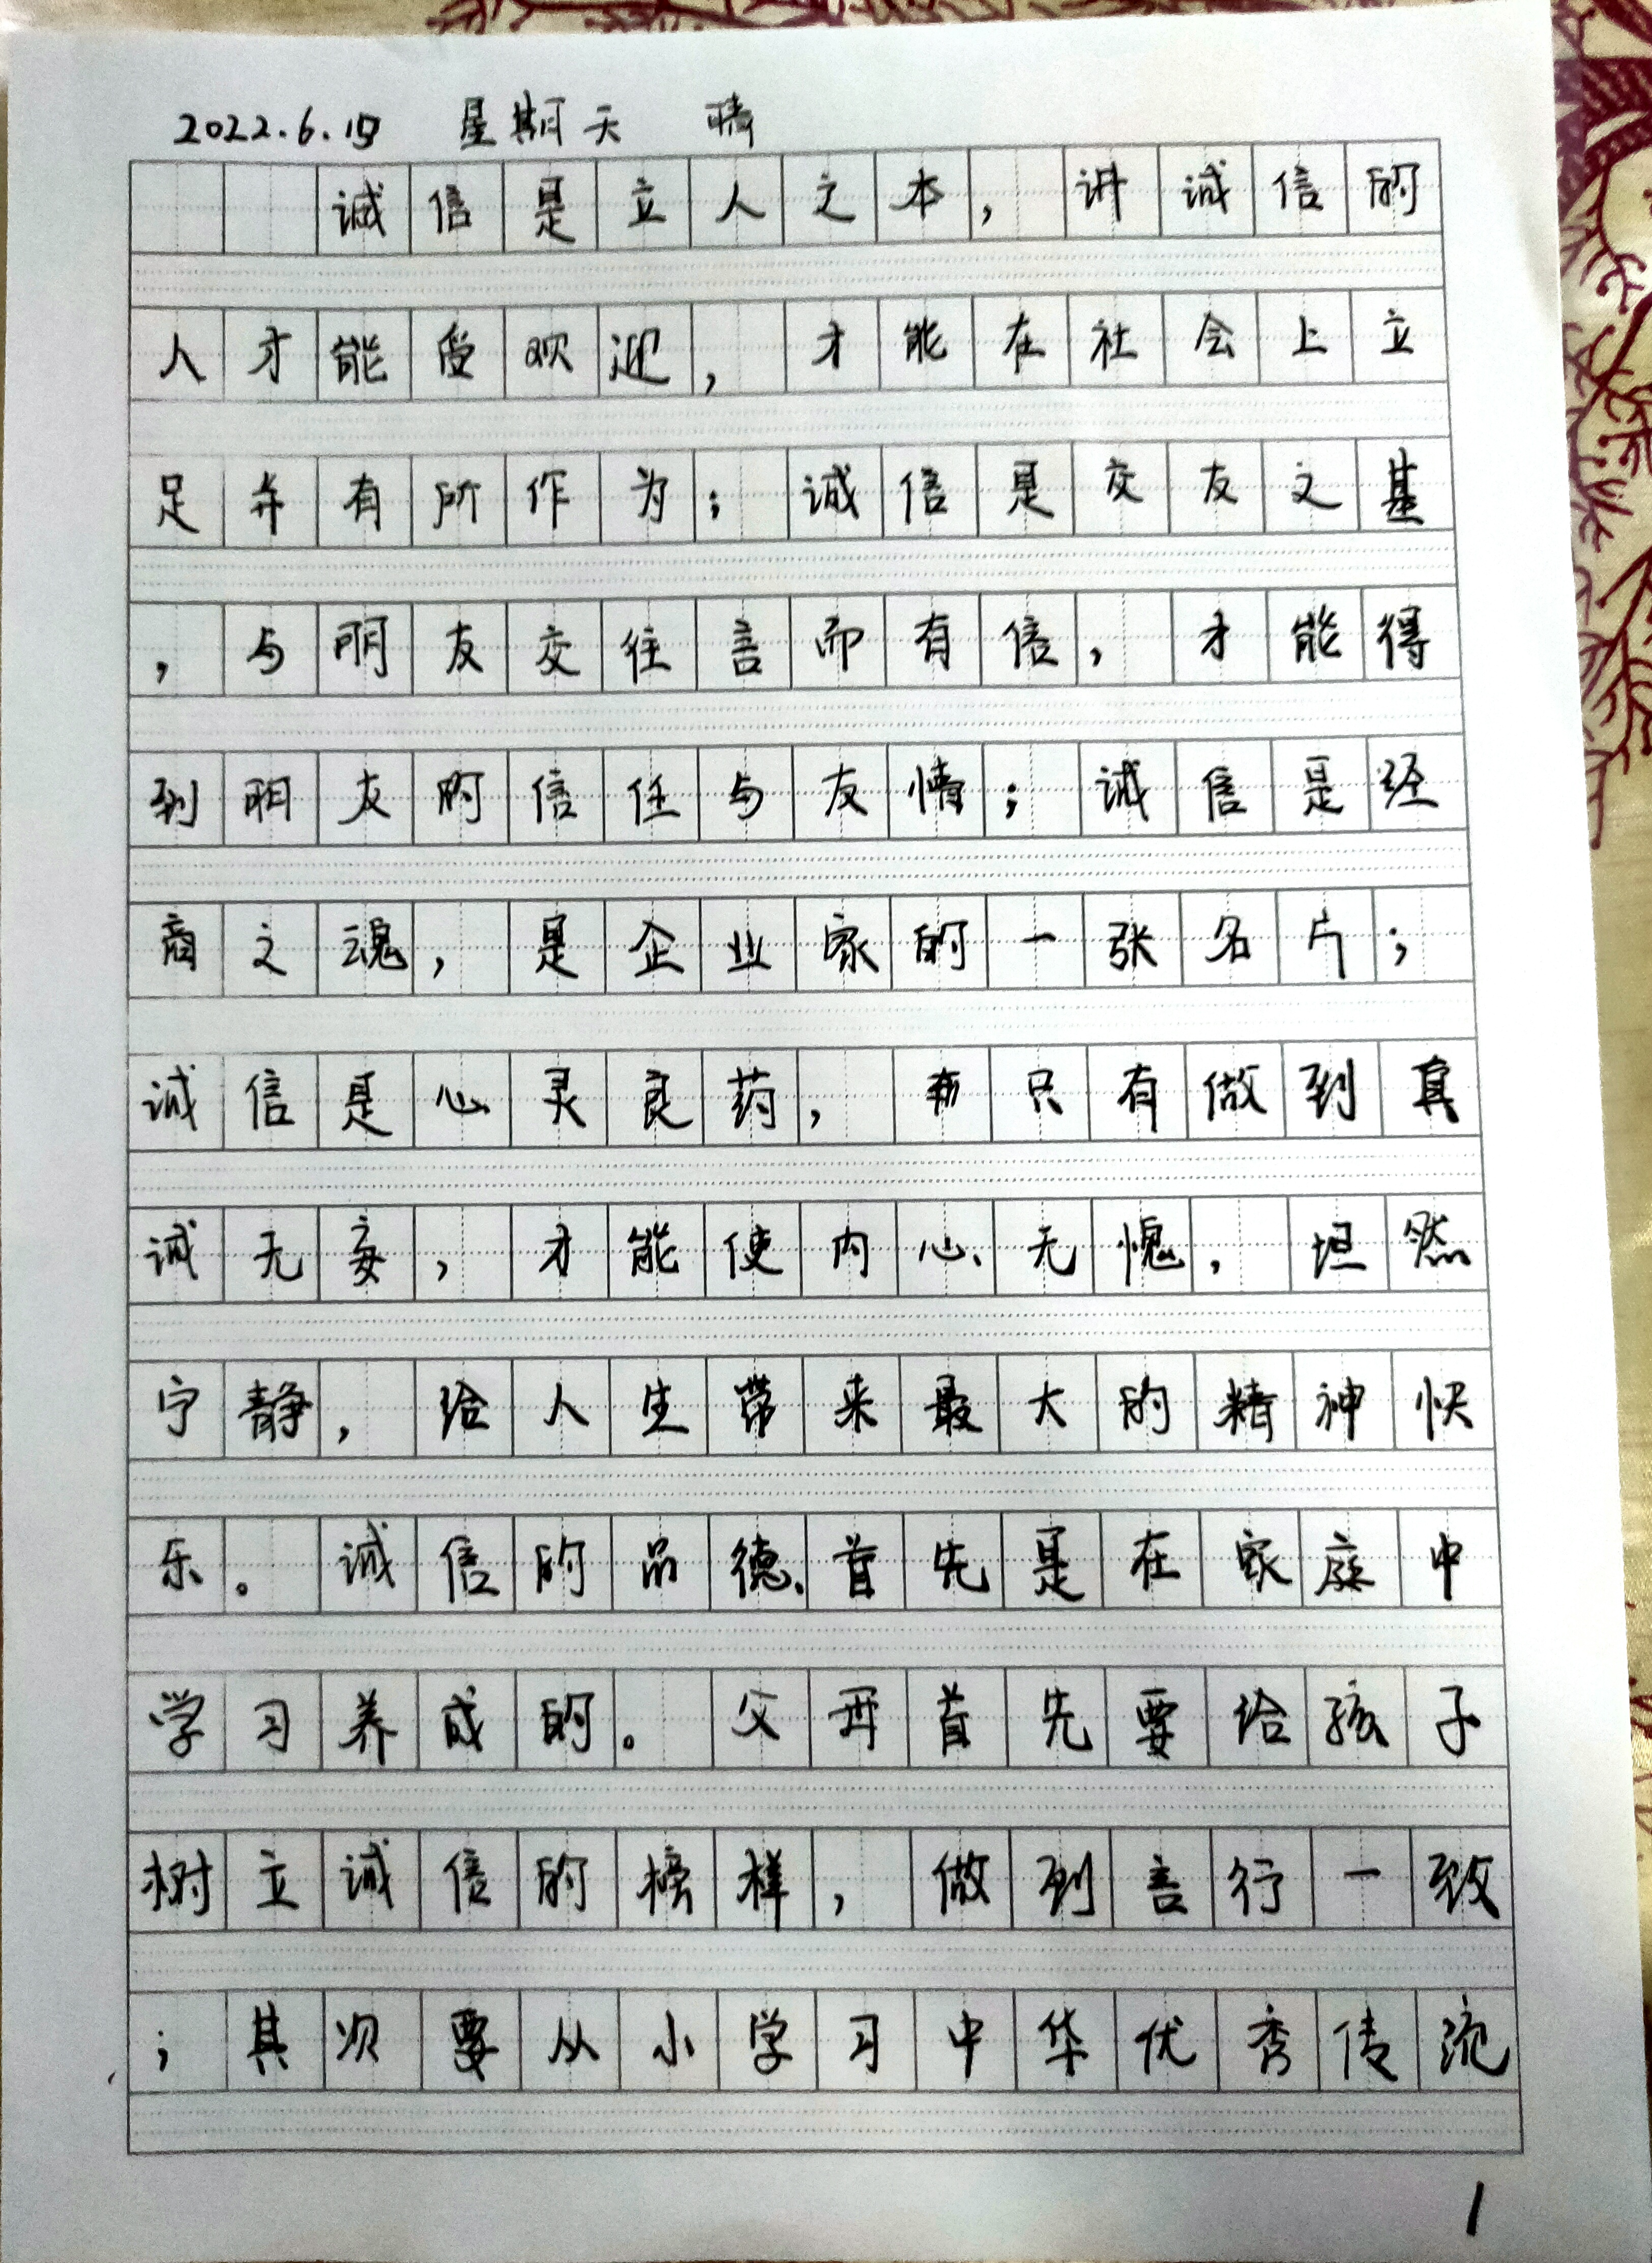 2022.6.19 星期天 晴
诚信是立人之本，讲诚信的
人才能受欢迎，才能在社会上立
足并有所作为；诚信是交友之基
，与朋友交往言而有信，才能得
到朋友的信任与友情；诚信是经
商之魂，是企业家的一张名片；
诚信是心灵良药，只有做到真
诚无妄，才能使内心无愧，坦然
宁静，给人生带来最大的精神快
乐。诚信的品德、首先是在家庭中
学习养成的。父母首先要给孩子
树立诚信的榜样，做到言行一致
；其次要从小学习中华优秀传统
1